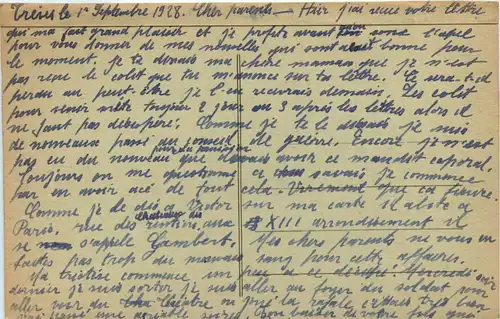 Trèves le 1er Septembre 1928. Cher parents — Hier j'ai reçue votre lettre
qui ma fait grand plaisir et je profite avant l'apel
pour vous donner de mes nouvelles qui sont bonne pour
le moment, je te dirais ma chère maman que je n'est
pas reçue le colit que tu m'anonce sur ta lettre. Ce sera-t-il
perdu au peut être je l'en recevrais demain. Les colit
pour venir mète toujour 2 jour ou 3 après les lètres alors il
ne faut pas déséspéré. Comme je te le disais je suis
de nouveaux pani du conseil de guèrre. Encore je n'est
pas eu du nouveau que devais avoir ce maudit caporal.
Toujours on me questionne ce savais je commence
par en avoir acé de tout cela. Vivement que ca finire.
Comme je de dis a Victor sur ma carte il abite a
Paris, rue des rentière, XIII arrondisement il
se s'apèlle Lambert. Mes chers parents ne vous en
faites pas trop du mauvais sang pour cete affaires.
Ma tristèse commence un peu a ce dissipé! Mercredi
dernier je suis sortir je suis aller au foyer du soldat voir
aller voir du théatre ou jué la rafale c'étais très bien
une agréable soirée. Bon baiser de votre fils qui